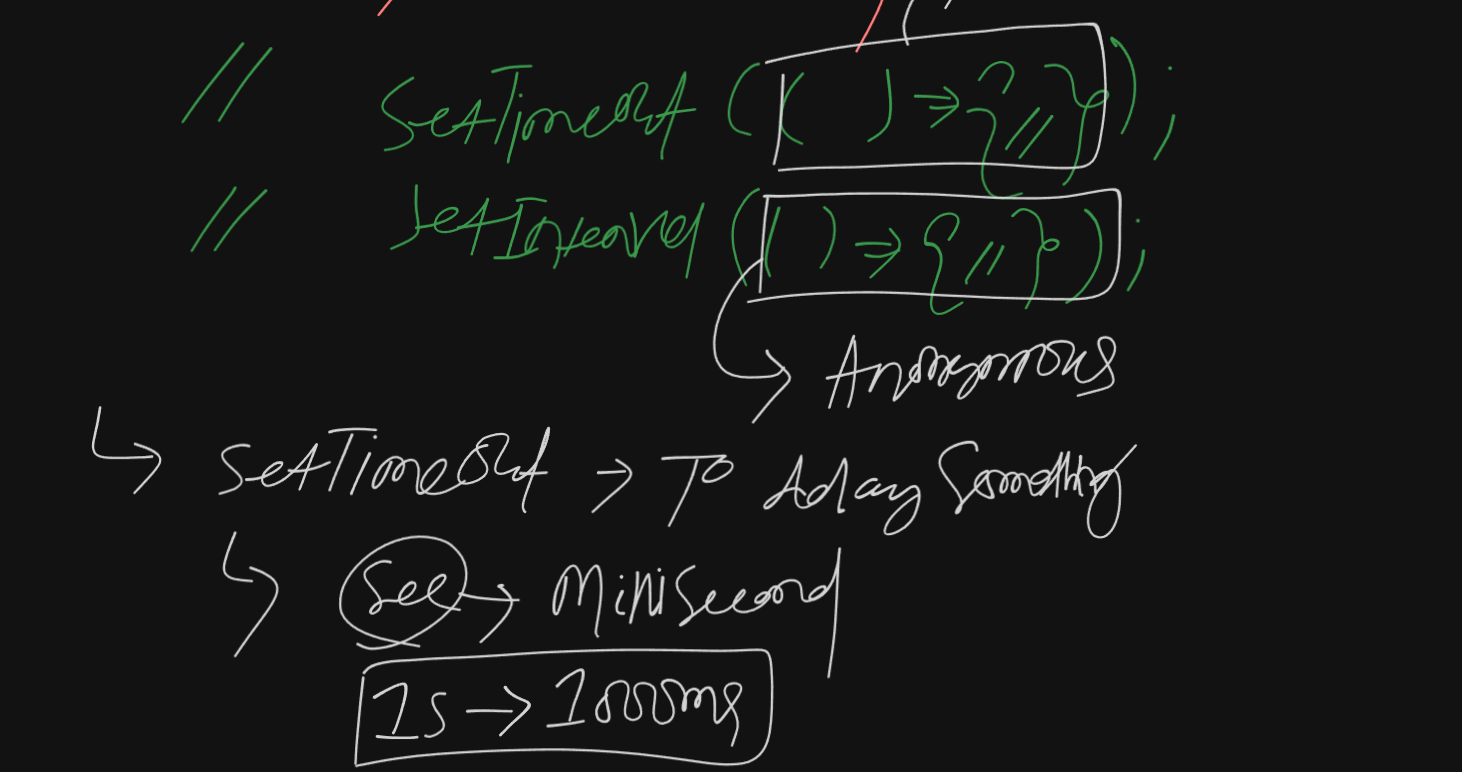 // SetTimeOut (( ) => {//});
// SetInterval (( ) => {//});
→ Anonymous
↳ SetTimeOut → To Adlay Something
↳ Sec → MiliSecond
1s → 1000ms